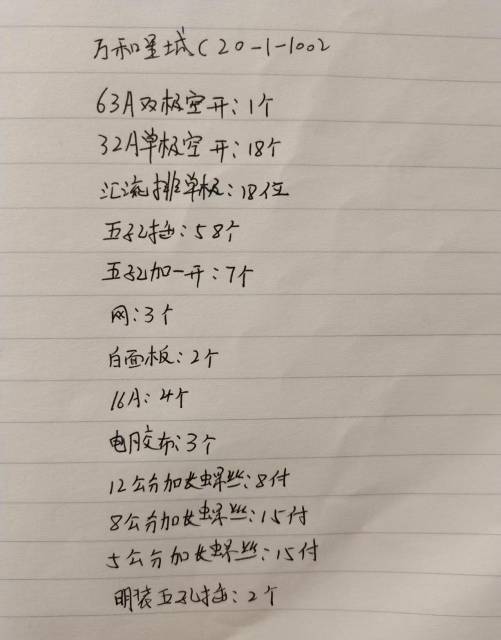 万和星城C20-1-1002
63A双极空开:1个
32A单极空开:18个
汇流排单极:18位
五孔插:58个
五孔加一开:7个
网:3个
白面板:2个
16A:4个
电胶布:3个
12公分加长螺丝:8付
8公分加长螺丝:15付
5公分加长螺丝:15付
明装五孔插:2个